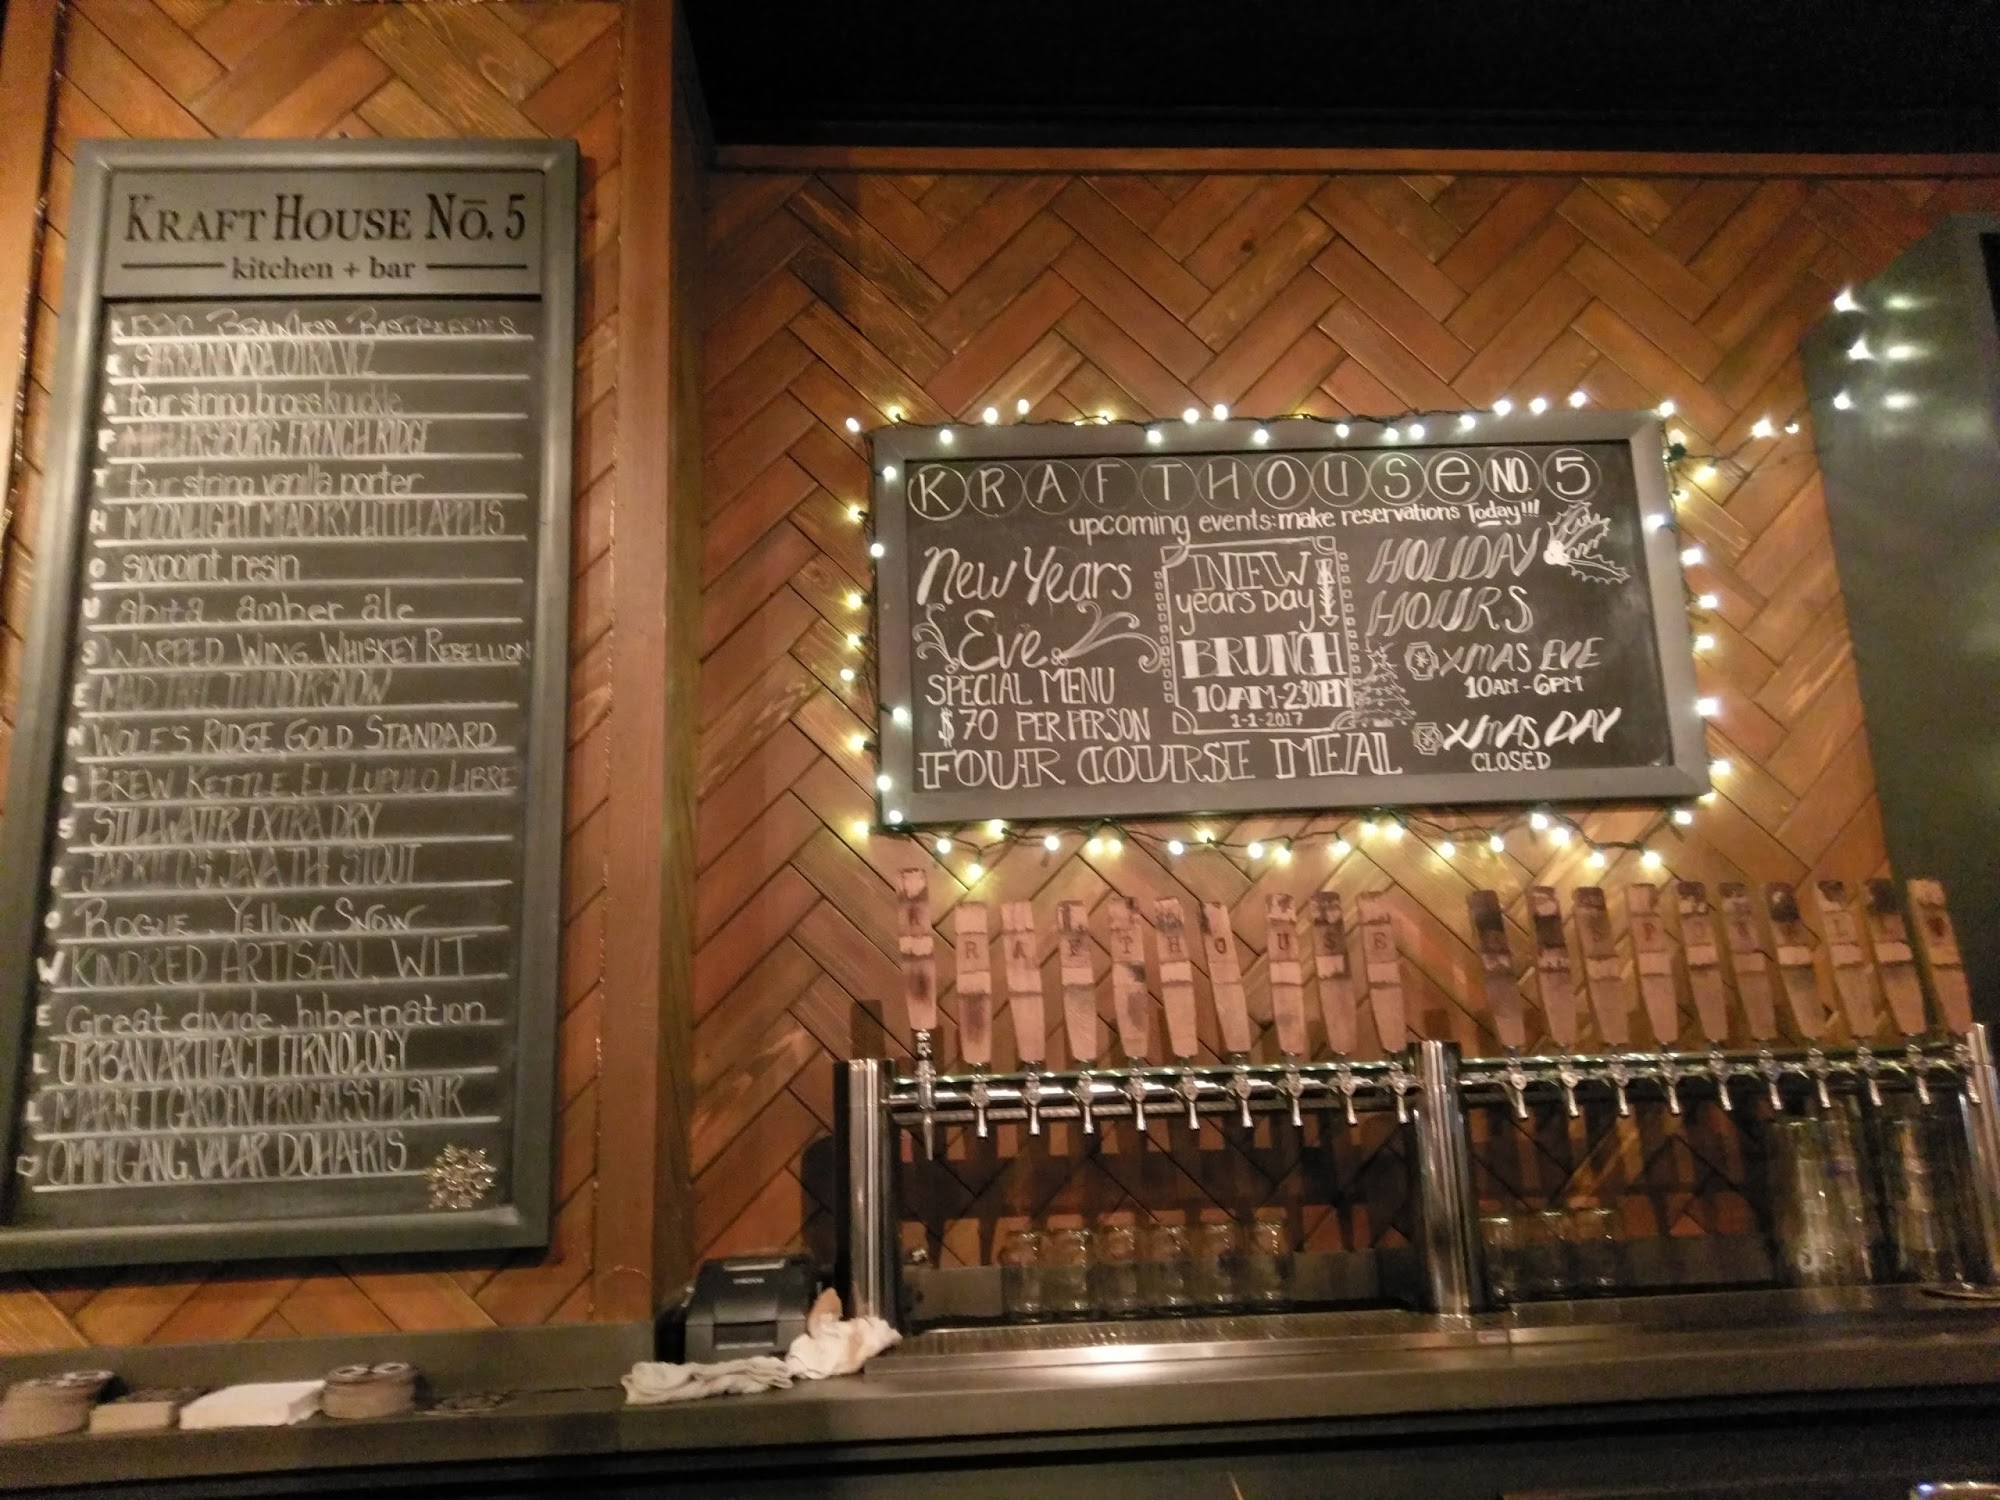 KRAFTHOUSE NO. 5
kitchen + bar
K EPIC BRAINLESS RASPBERRIES
R SIERRA NVADA, OTRA VEZ
A four string, brass knuckle
F MILLERSBURG, FRENCH RIDGE
T four string, vanilla porter
H MOONLIGHT MEADERY, LITTLE APPLES
O sixpoint, resin
U abita, amber ale
S WARPED WING, WHISKEY REBELLION
E MAD TREE, THUNDERSNOW
N WOLF'S RIDGE, GOLD STANDARD
O BREW KETTLE, EL LUPULO LIBRE
5 STILLWATER, EXTRA DRY
P JACKIE O'S, JAVA THE STOUT
O ROGUE, YELLOW SNOW
W KINDRED ARTISAN, WIT
E Great divide, hibernation
L URBAN ARTIFACT,
L MARKET GARDEN, PROGRESS PILSNER
OMMEGANG, VALAR DOHAERIS
KRAFTHOUSE NO. 5
upcoming events: make reservations Today!!!
New Years
Eve
SPECIAL MENU
$70 PER PERSON
FOUR COURSE MEAL
NEW
years DAY
BRUNCH
10AM-230PM
1-1-2017
HOLIDAY
HOURS
XMAS EVE
10AM-6PM
XMAS DAY
CLOSED
K R A F T H O U S E
P O W E L L